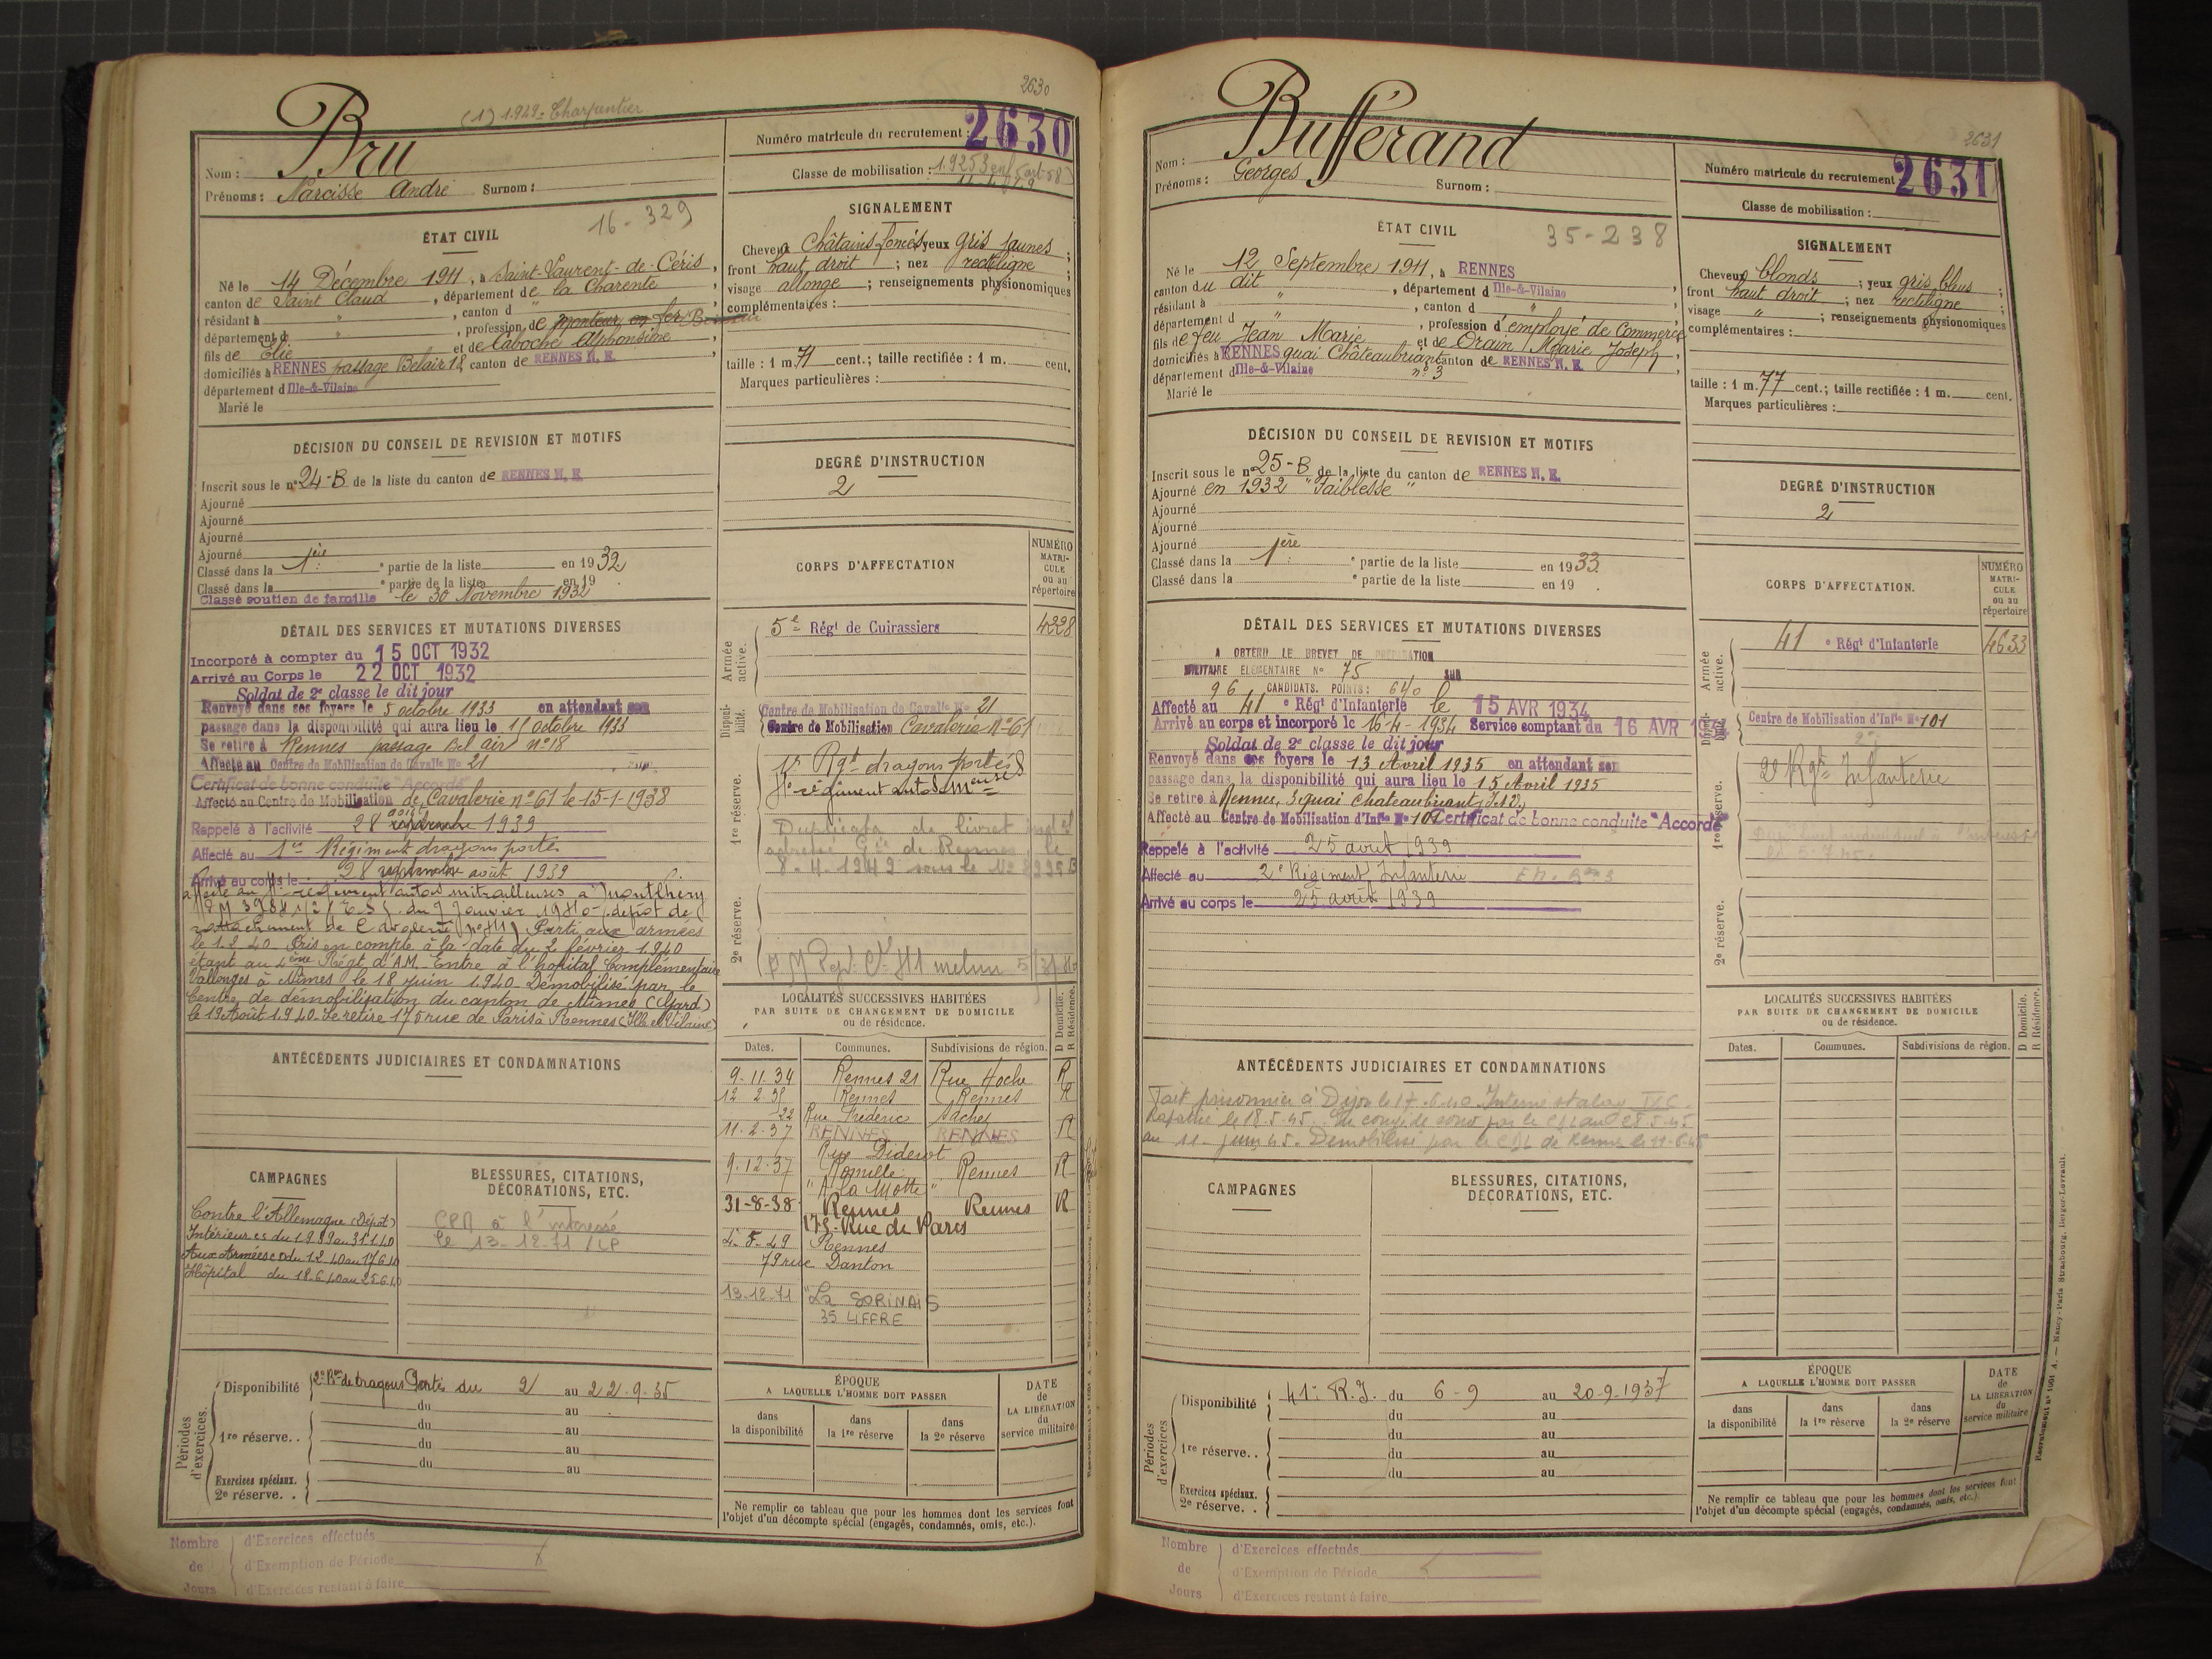 2630
(1) 1.949 = Charpentier
Nom : Bru
Prénoms : Narcisse André Surnom :
Numéro matricule du recrutement : 2630
Classe de mobilisation : 1.925
ÉTAT CIVIL
16-329
Né le 14 Décembre 1911, à Saint-Laurent-de-Céris,
canton de Saint Claud, département de la Charente,
résidant à ", canton d
département d ", profession de monteur en fer
fils de Elie et de Laboche Alphonsine,
domiciliés à RENNES passage Belair 18 canton de RENNES N. E.,
département d'Ille-&-Vilaine
Marié le
SIGNALEMENT
Cheveux Châtains foncés yeux gris jaunes ;
front haut droit ; nez rectiligne ;
visage allongé ; renseignements physionomiques
complémentaires :
taille : 1 m. 71 cent.; taille rectifiée : 1 m. cent.
Marques particulières :
DÉCISION DU CONSEIL DE REVISION ET MOTIFS
Inscrit sous le n° 24-B de la liste du canton de RENNES N. E.
Ajourné
Ajourné
Ajourné
Ajourné
Classé dans la 1ère partie de la liste en 1932
Classé dans la e partie de la liste en 19 .
Classé soutien de famille le 30 Novembre 1932
DEGRÉ D'INSTRUCTION
2
DÉTAIL DES SERVICES ET MUTATIONS DIVERSES
Incorporé à compter du 15 OCT 1932
Arrivé au Corps le 22 OCT 1932
Soldat de 2e classe le dit jour
Renvoyé dans ses foyers le 5 octobre 1933 en attendant son
passage dans la disponibilité qui aura lieu le 15 octobre 1933
Se retire à Rennes passage Bel air n° 18
Affecté au Centre de Mobilisation de Cavalie No 21
Certificat de bonne conduite "Accordé"
Affecté au Centre de Mobilisation de Cavalerie n° 61 le 15-1-1938
Rappelé à l'activité 28 août septembre 1939
Affecté au 1er Régiment dragons portés
Arrivé au corps le 28 septembre août 1939
régiment autos mitrailleuses à Montlhéry
du 7 Janvier 1940 - (dépôt de
rattachement de Cavalerie n° 411) Parti aux armées
le 1.2.40 Pris en compte à la date du 2 février 1.940
étant au 4ème Régt d'A.M. Entre à l'hôpital Complémentaire
Vallonges à Nîmes le 18 juin 1.940 Démobilisé par le
Centre de démobilisation du canton de Nîmes (Gard)
le 19 Août 1.940. Se retire 175 rue de Paris à Rennes (Ille et Vilaine)
CORPS D'AFFECTATION
NUMÉRO MATRICULE ou au répertoire
Armée active.
5e Régt de Cuirassiers 4228
Disponibilité.
Centre de Mobilisation de Cavalie No 21
Centre de Mobilisation Cavalerie N° 61
1re réserve.
1er Rgt dragons portés
régiment autos
Duplicata de livret
adressé Gie de Rennes le
8.4.1949 sous le No
2e réserve.
ANTÉCÉDENTS JUDICIAIRES ET CONDAMNATIONS
LOCALITÉS SUCCESSIVES HABITÉES
PAR SUITE DE CHANGEMENT DE DOMICILE
ou de résidence.
D Domicile.
R Résidence.
Dates. Communes. Subdivisions de région.
9-11-34 Rennes 21 Rue Hoche R
12-2-35 Rennes Rennes R
22 Rue Frédéric Sachet
11-2-37 RENNES RENNES R
Rue Diderot
9-12-37 Romillé Rennes R
"A la Motte"
31-8-38 Rennes Rennes R
175-Rue de Paris
4-5-49 Rennes
79 rue Danton
13-12-71 "La SORINAIS
35 LIFFRE
CAMPAGNES
Contre l'Allemagne (Dépôt)
Intérieur cs du au 31.1.40
Aux Armées cd du 1.2.40 au 17.6.40
Hôpital du 18.6.40 au 25.6.40
BLESSURES, CITATIONS,
DÉCORATIONS, ETC.
CPR à l'intéressé
le 13-12-71
Périodes d'exercices.
Disponibilité de dragons Portés du 2 au 22-9-35
du au
1re réserve. . du au
du au
du au
Exercices spéciaux.
2e réserve. .
ÉPOQUE
A LAQUELLE L'HOMME DOIT PASSER
dans la disponibilité
dans la 1re réserve
dans la 2e réserve
DATE de LA LIBÉRATION du service militaire
Ne remplir ce tableau que pour les hommes dont les services font
l'objet d'un décompte spécial (engagés, condamnés, omis, etc.).
Nombre de Jours
d'Exercices effectués
d'Exemption de Période
d'Exercices restant à faire
2631
Nom : Bufférand
Prénoms : Georges Surnom :
Numéro matricule du recrutement 2631
Classe de mobilisation :
ÉTAT CIVIL
35-238
Né le 12 Septembre 1911, à RENNES
canton du dit, département d'Ille-&-Vilaine,
résidant à ", canton d "
département d ", profession d'employé de Commerce
fils de feu Jean Marie et de Orain Marie Joseph,
domiciliés à RENNES quai Châteaubriant n° 3 canton de RENNES N. E.,
département d'Ille-&-Vilaine
Marié le
SIGNALEMENT
Cheveux blonds ; yeux gris bleus ;
front haut droit ; nez rectiligne ;
visage " ; renseignements physionomiques
complémentaires :
taille : 1 m. 77 cent.; taille rectifiée : 1 m. cent.
Marques particulières :
DÉCISION DU CONSEIL DE REVISION ET MOTIFS
Inscrit sous le n° 25-B de la liste du canton de RENNES N. E.
Ajourné en 1932 "Faiblesse"
Ajourné
Ajourné
Ajourné
Classé dans la 1ère partie de la liste en 1933.
Classé dans la e partie de la liste en 19 .
DEGRÉ D'INSTRUCTION
2
DÉTAIL DES SERVICES ET MUTATIONS DIVERSES
A OBTENU LE BREVET DE PRÉPARATION
MILITAIRE ÉLÉMENTAIRE No 75 SUR
96 CANDIDATS. POINTS : 640
Affecté au 41e Régt d'Infanterie le 15 AVR 1934
Arrivé au corps et incorporé le 16-4-1934 Service comptant du 16 AVR 1934
Soldat de 2e classe le dit jour
Renvoyé dans ses foyers le 13 Avril 1935 en attendant son
passage dans la disponibilité qui aura lieu le 15 Avril 1935
Se retire à Rennes, 3 quai Chateaubriant, I&V,
Affecté au Centre de Mobilisation d'Infie No 101 Certificat de bonne conduite "Accordé"
Rappelé à l'activité 25 août 1939
Affecté au 2e Régiment Infanterie
Arrivé au corps le 25 août 1939
CORPS D'AFFECTATION.
NUMÉRO MATRICULE ou au répertoire
Armée active.
41e Régt d'Infanterie 4633
Disponibilité.
Centre de Mobilisation d'Infie No 101
1re réserve.
2e Rgt Infanterie
2e réserve.
ANTÉCÉDENTS JUDICIAIRES ET CONDAMNATIONS
Fait prisonnier à Dijon le 17.6.40 Interné stalag
Rapatrié le 18.5.45. En congé de
au 11 juin 45. Démobilisé par le de Rennes le 11-6-45
LOCALITÉS SUCCESSIVES HABITÉES
PAR SUITE DE CHANGEMENT DE DOMICILE
ou de résidence.
D Domicile.
R Résidence.
Dates. Communes. Subdivisions de région.
CAMPAGNES
BLESSURES, CITATIONS,
DÉCORATIONS, ETC.
Périodes d'exercices
Disponibilité 41e R.I. du 6-9 au 20-9-1937
du au
1re réserve. . du au
du au
du au
Exercices spéciaux.
2e réserve. .
ÉPOQUE
A LAQUELLE L'HOMME DOIT PASSER
dans la disponibilité
dans la 1re réserve
dans la 2e réserve
DATE de LA LIBÉRATION du service militaire
Ne remplir ce tableau que pour les hommes dont les services font
l'objet d'un décompte spécial (engagés, condamnés, omis, etc.).
Nombre de Jours
d'Exercices effectués
d'Exemption de Période
d'Exercices restant à faire